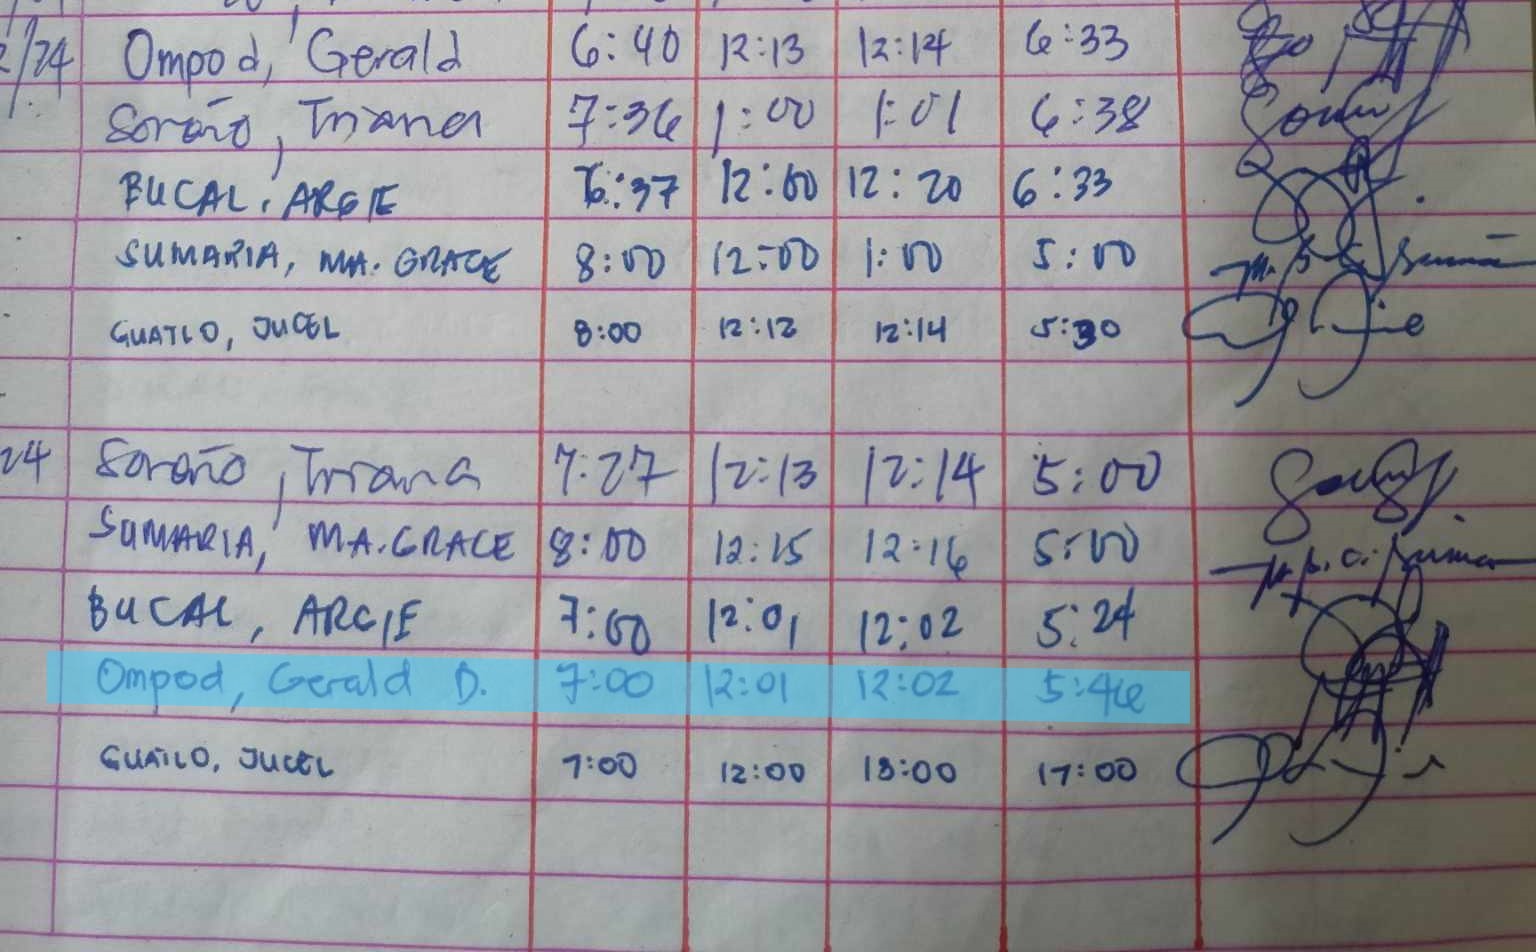 2/24 Ompod, Gerald 6:40 12:13 12:14 6:33
Soroño, Triana 7:36 1:00 1:01 6:38
BUCAL, ARGIE 6:37 12:00 12:20 6:33
SUMARIA, MA. GRACE 8:00 12:00 1:00 5:00
GUATLO, JUCEL 8:00 12:12 12:14 5:30
24 Soroño, Triana 7:27 12:13 12:14 5:00
SUMARIA, MA. GRACE 8:00 12:15 12:16 5:00
BUCAL, ARGIE 7:00 12:01 12:02 5:24
Ompod, Gerald D. 7:00 12:01 12:02 5:46
GUATLO, JUCEL 7:00 12:00 13:00 17:00